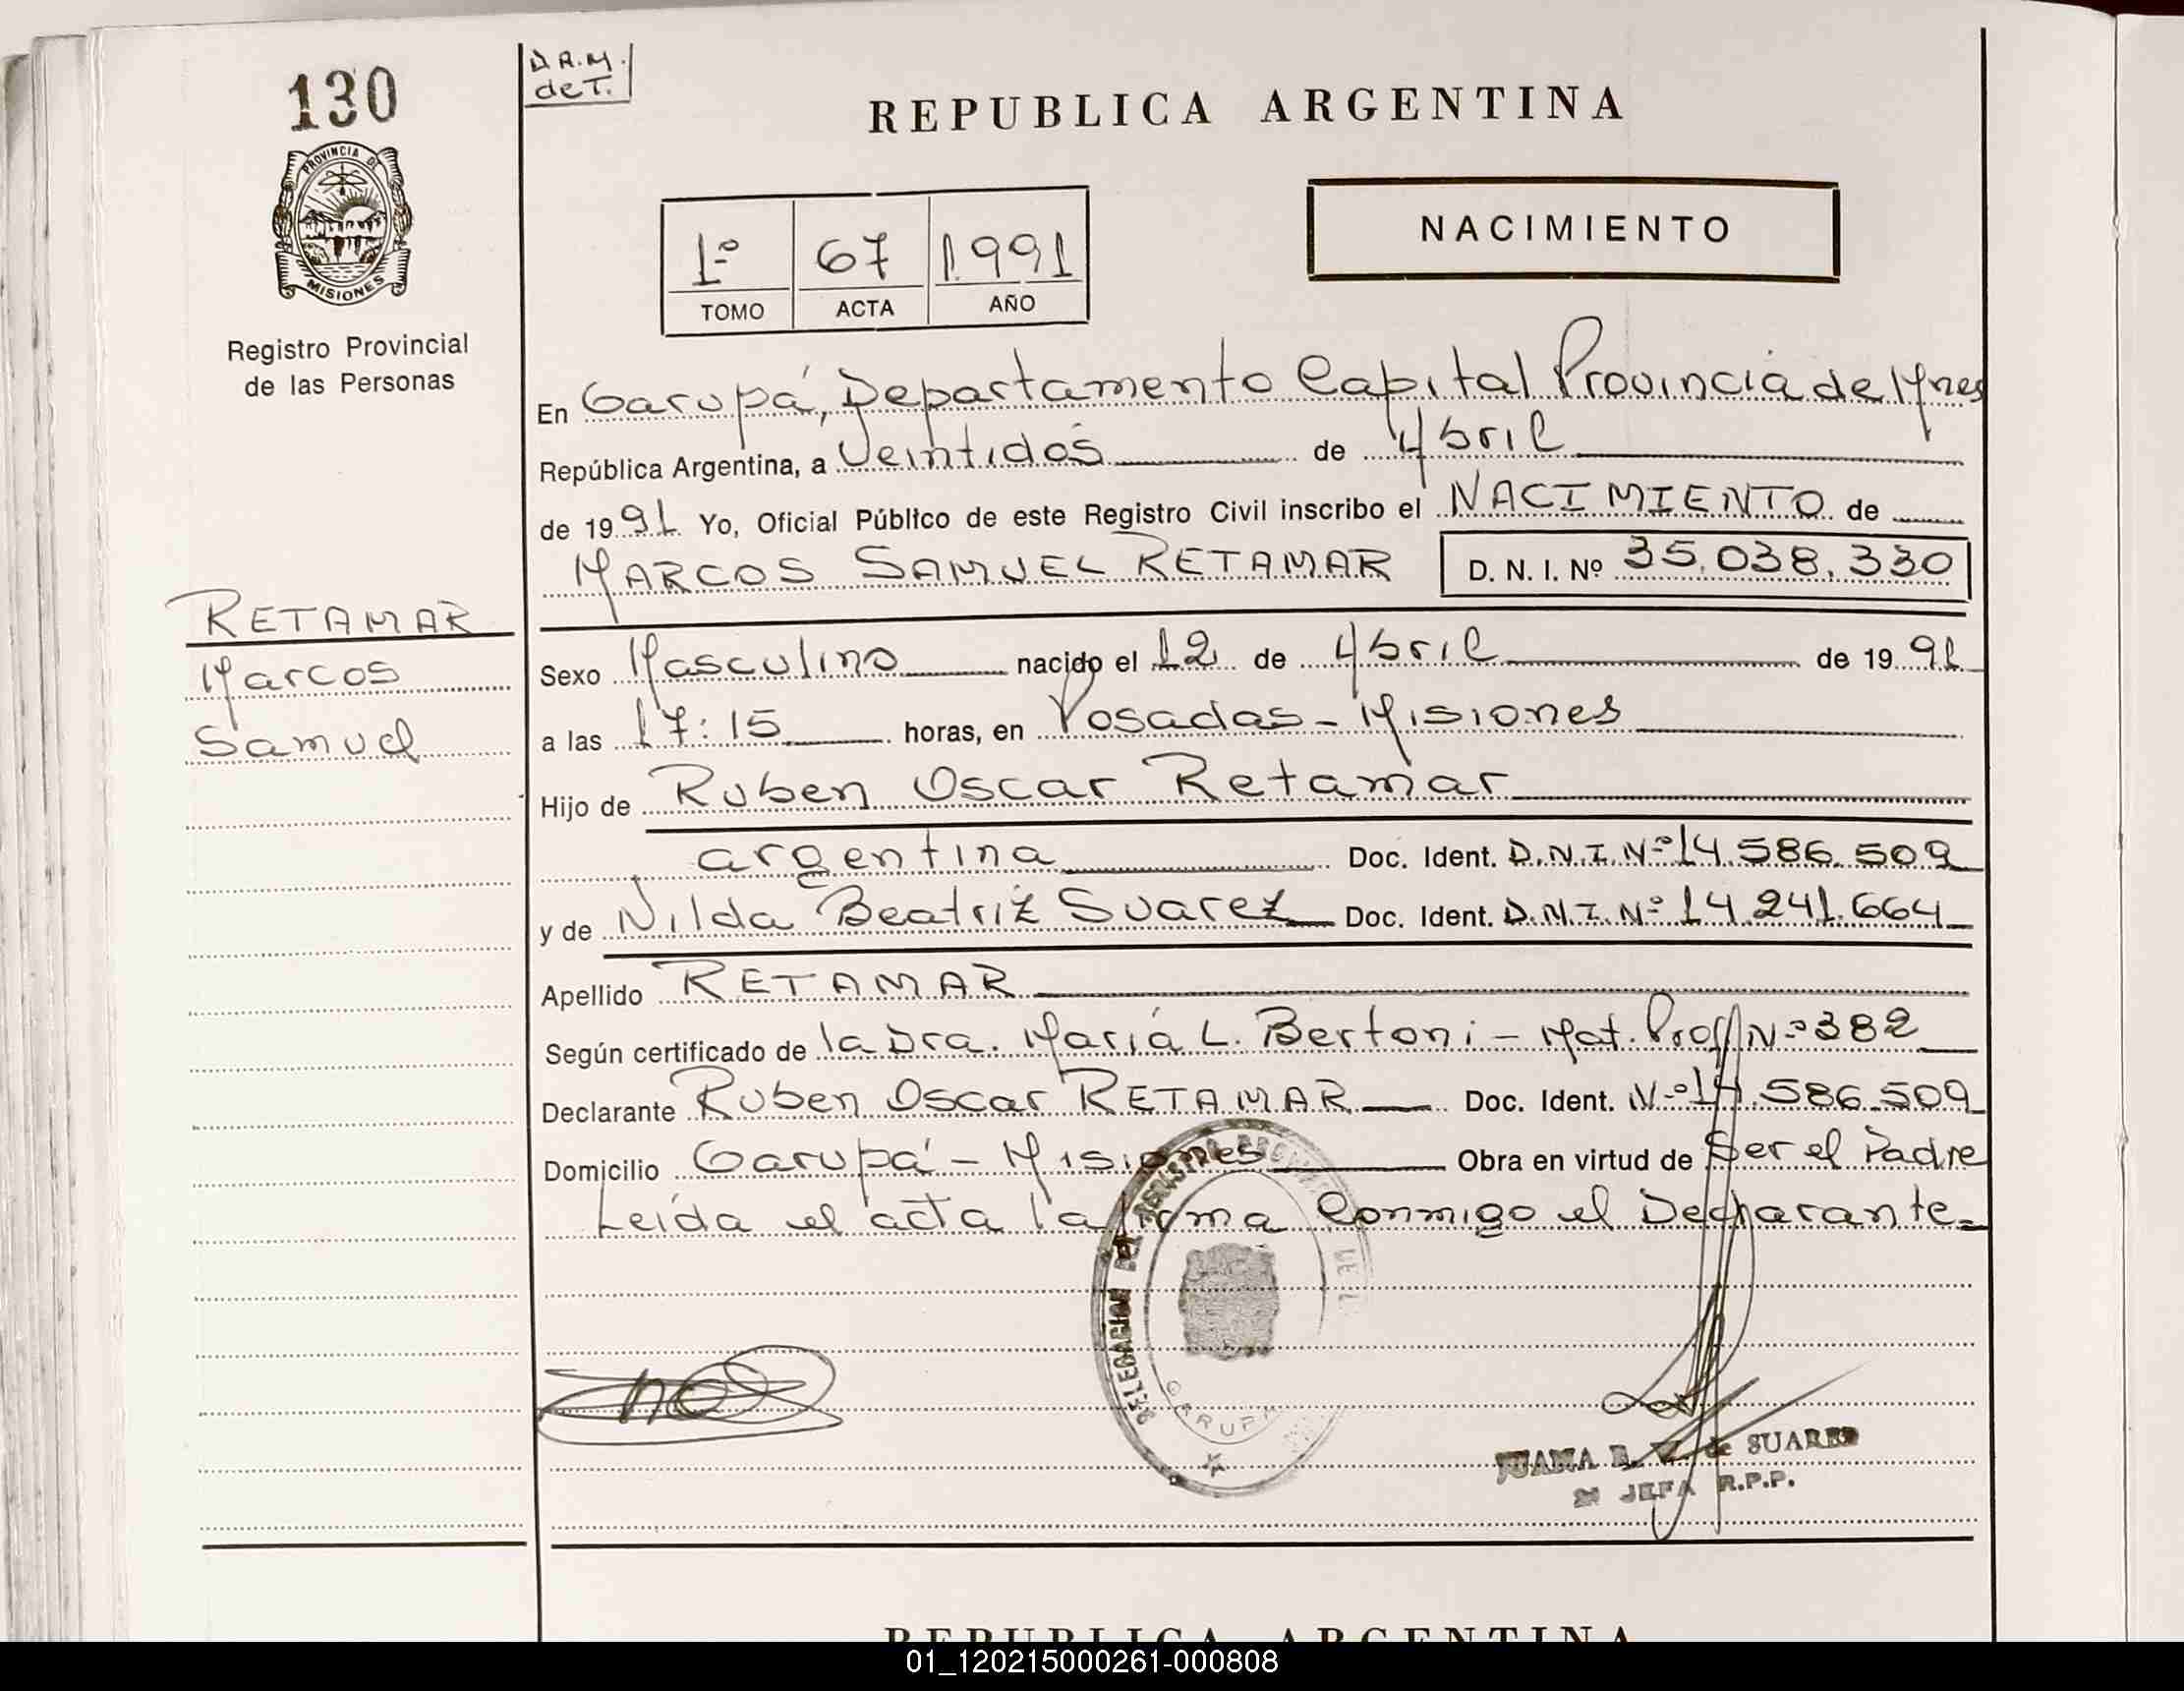 130
D.R.M.
de T.
REPUBLICA ARGENTINA
PROVINCIA DE
MISIONES
Registro Provincial
de las Personas
1º 67 1991
TOMO ACTA AÑO
NACIMIENTO
En Garupá, Departamento Capital Provincia de Mnes
República Argentina, a Veintidos de Abril
de 1991 Yo, Oficial Público de este Registro Civil inscribo el NACIMIENTO de
MARCOS SAMUEL RETAMAR D. N. I. Nº 35.038.330
RETAMAR
Marcos
Samuel
Sexo Masculino nacido el 12 de Abril de 1991
a las 17:15 horas, en Posadas - Misiones
Hijo de Ruben Oscar Retamar
argentina Doc. Ident. D.N.I. Nº 14.586.509
y de Nilda Beatriz Suarez Doc. Ident. D.N.I. Nº 14.241.664
Apellido RETAMAR
Según certificado de la Dra. María L. Bertoni - Mat. Prof Nº 382
Declarante Ruben Oscar RETAMAR Doc. Ident. Nº 14.586.509
Domicilio Garupá - Misiones Obra en virtud de Ser el Padre
Leída el acta la firma Conmigo el Declarante=
DELEGACION DEL REGISTRO
GARUPA
JUANA de SUAREZ
JEFA R.P.P.
REPUBLICA ARGENTINA
01_120215000261-000808